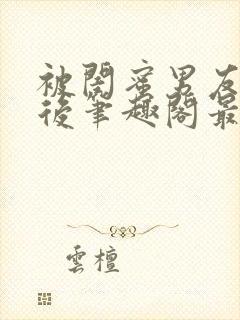 被閨蜜男友
後筆趣閣最
雲檀